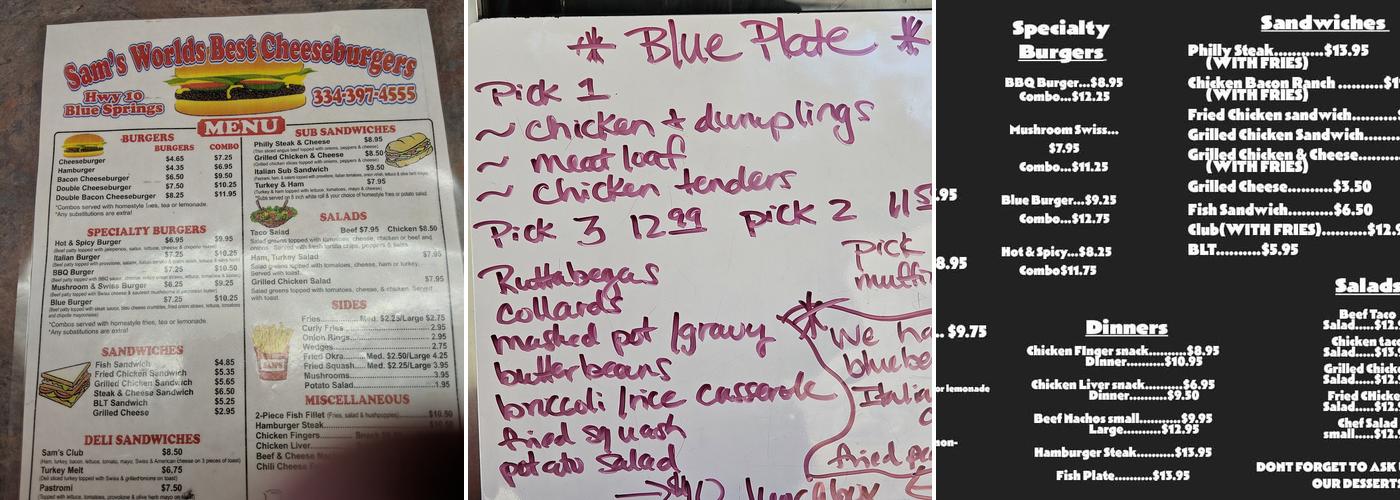 Sam's Worlds Best Cheeseburgers
Hwy 10
Blue Springs
334-397-4555
MENU
BURGERS
BURGERS COMBO
Cheeseburger $4.65 $7.25
Hamburger $4.35 $6.95
Bacon Cheeseburger $6.50 $9.50
Double Cheeseburger $7.50 $10.25
Double Bacon Cheeseburger $8.25 $11.95
*Combos served with homestyle fries, tea or lemonade.
*Any substitutions are extra!
SPECIALTY BURGERS
Hot & Spicy Burger $6.95 $9.95
Italian Burger $7.25 $10.25
BBQ Burger $7.25 $10.50
Mushroom & Swiss Burger $6.25 $9.25
Blue Burger $7.25 $10.25
*Combos served with homestyle fries, tea or lemonade.
*Any substitutions are extra!
SANDWICHES
Fish Sandwich $4.85
Fried Chicken Sandwich $5.35
Grilled Chicken Sandwich $5.65
Steak & Cheese Sandwich $6.50
BLT Sandwich $5.25
Grilled Cheese $2.95
DELI SANDWICHES
Sam's Club $8.50
(Ham, turkey, bacon, lettuce, tomato, mayo, Swiss & American cheese on 3 pieces of toast)
Turkey Melt $6.75
Pastromi $7.50
SUB SANDWICHES
Philly Steak & Cheese $8.95
Grilled Chicken & Cheese $8.50
Italian Sub Sandwich $9.50
Turkey & Ham $7.95
(Turkey & ham topped with lettuce, tomatoes, mayo & cheese)
SALADS
Taco Salad Beef $7.95 Chicken $8.50
Salad greens topped with tomatoes, cheese, chicken or beef and
onions. Served with fresh tortilla chips, peppers & salsa.
Ham, Turkey Salad $7.95
Salad greens topped with tomatoes, cheese, ham or turkey.
Served with toast.
Grilled Chicken Salad $7.95
Salad greens topped with tomatoes, cheese, & chicken. Served
with toast.
SIDES
Fries Med. $2.25/Large $2.75
Curly Fries 2.95
Onion Rings 2.95
Wedges 2.75
Fried Okra Med. $2.50/Large 4.25
Fried Squash Med. $2.25/Large 3.95
Mushrooms 3.95
Potato Salad 1.95
MISCELLANEOUS
2-Piece Fish Fillet (Fries, salad & hushpuppies) $10.50
Hamburger Steak
Chicken Fingers
Chicken Liver
Chili Cheese
* Blue Plate *
Pick 1
~ chicken + dumplings
~ meat loaf
~ chicken tenders
Pick 3 12.99 pick 2 11.5
Pick
muffi
Ruttabegas
collards
mashed pot /gravy
butterbeans
broccoli /rice casserole
fried squash
potato salad
We ha
bluebe
Italia
fried
Specialty
Burgers
BBQ Burger...$8.95
Combo...$12.25
Mushroom Swiss...
$7.95
Combo...$11.25
Blue Burger...$9.25
Combo...$12.75
Hot & Spicy...$8.25
Combo$11.75
.95
8.95
.. $9.75
or lemonade
non-
Sandwiches
Philly Steak...........$13.95
(WITH FRIES)
Chicken Bacon Ranch ..........$1
(WITH FRIES)
Fried Chicken sandwich..........$
Grilled Chicken Sandwich........
Grilled Chicken & Cheese........
(WITH FRIES)
Grilled Cheese..........$3.50
Fish Sandwich..........$6.50
Club(WITH FRIES)..........$12.9
BLT..........$5.95
Dinners
Chicken Finger snack..........$8.95
Dinner..........$10.95
Chicken Liver snack..........$6.95
Dinner..........$9.50
Beef Nachos small..........$9.95
Large..........$12.95
Hamburger Steak..........$13.95
Fish Plate..........$13.95
Salads
Beef Taco
Salad.....$12.
Chicken taco
Salad.....$13.
Grilled Chicke
Salad.....$12.
Fried Chicke
Salad.....$12.
Chef Salad
small.....$12.
DONT FORGET TO ASK
OUR DESSERT